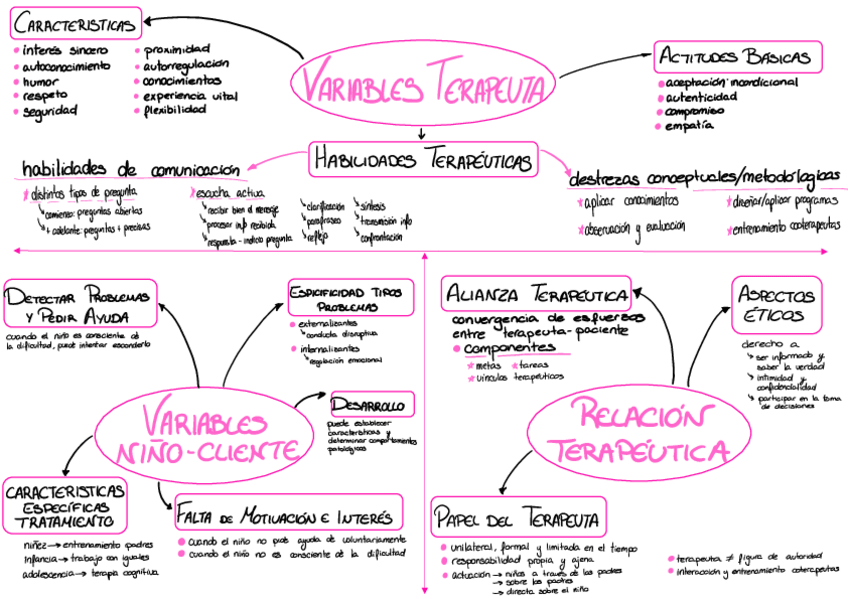 CARACTERISTICAS
interés sincero
autoconocimiento
humor
respeto
seguridad
proximidad
autorregulación
conocimientos
experiencia vital
flexibilidad
VARIABLES TERAPEUTA
ACTITUDES BÁSICAS
aceptación incondicional
autenticidad
compromiso
empatía
HABILIDADES TERAPÉUTICAS
habilidades de comunicación
distintos tipos de pregunta
comienzo: preguntas abiertas
+ adelante: preguntas + precisas
escucha activa
recibir bien el mensaje
procesar info recibida
respuesta - indicio pregunta
clarificación
parafraseo
reflejo
síntesis
transmisión info
confrontación
destrezas conceptuales/metodológicas
aplicar conocimientos
observación y evaluación
diseñar/aplicar programas
entrenamiento coterapeutas
DETECTAR PROBLEMAS
Y PEDIR AYUDA
cuando el niño es consciente de
la dificultad, puede intentar esconderlo
ESPICIFICIDAD TIPOS
PROBLEMAS
externalizantes
conducta disruptiva
internalizantes
regulación emocional
DESARROLLO
puede establecer
características y
determinar comportamientos
patológicos
VARIABLES
NIÑO-CLIENTE
CARACTERISTICAS
ESPECÍFICAS
TRATAMIENTO
niñez → entrenamiento padres
infancia → trabajo con iguales
adolescencia → terapia cognitiva
FALTA DE MOTIVACIÓN E INTERÉS
cuando el niño no pide ayuda de voluntariamente
cuando el niño no es consciente de la dificultad
ALIANZA TERAPEUTICA
convergencia de esfuerzos
entre terapeuta-paciente
componentes
metas
tareas
vínculos terapéuticos
ASPECTOS
ÉTICOS
derecho a
ser informado y
saber la verdad
intimidad y
confidencialidad
participar en la toma
de decisiones
RELACIÓN
TERAPÉUTICA
PAPEL DEL TERAPEUTA
unilateral, formal y limitada en el tiempo
responsabilidad propia y ajena
actuación → niños a través de los padres
→ sobre los padres
→ directa sobre el niño
terapeuta ≠ figura de autoridad
interacción y entrenamiento coterapeutas